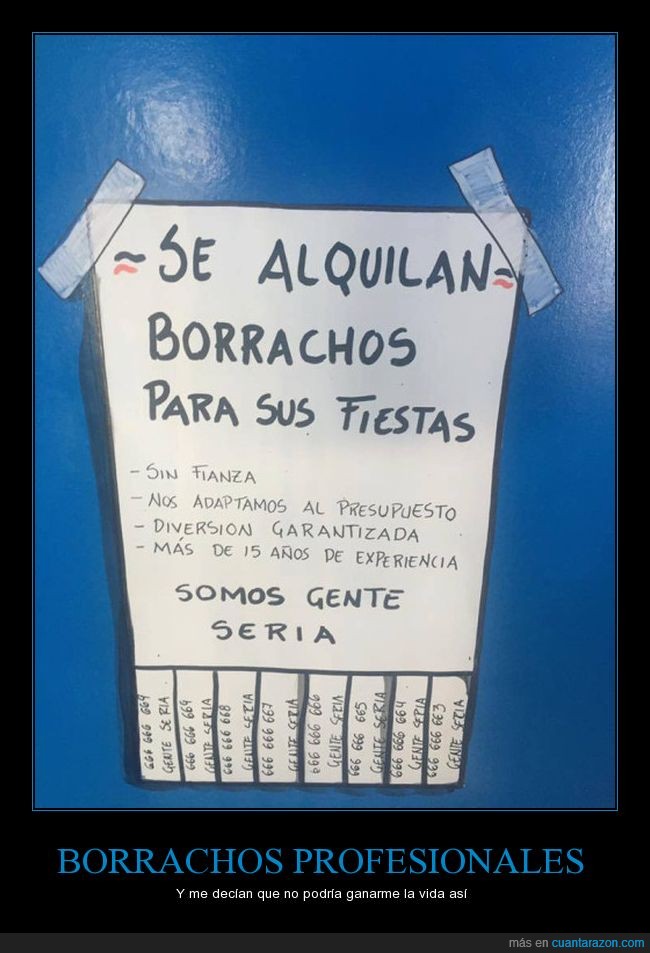 ~ SE ALQUILAN ~
BORRACHOS
PARA SUS FIESTAS
- SIN FIANZA
- NOS ADAPTAMOS AL PRESUPUESTO
- DIVERSION GARANTIZADA
- MÁS DE 15 AÑOS DE EXPERIENCIA
SOMOS GENTE
SERIA
666 666 669
GENTE SERIA
666 666 669
GENTE SERIA
666 666 668
GENTE SERIA
666 666 667
GENTE SERIA
666 666 666
GENTE SERIA
666 666 665
GENTE SERIA
666 666 664
GENTE SERIA
666 666 663
GENTE SERIA
BORRACHOS PROFESIONALES
Y me decían que no podría ganarme la vida así
más en cuantarazon.com